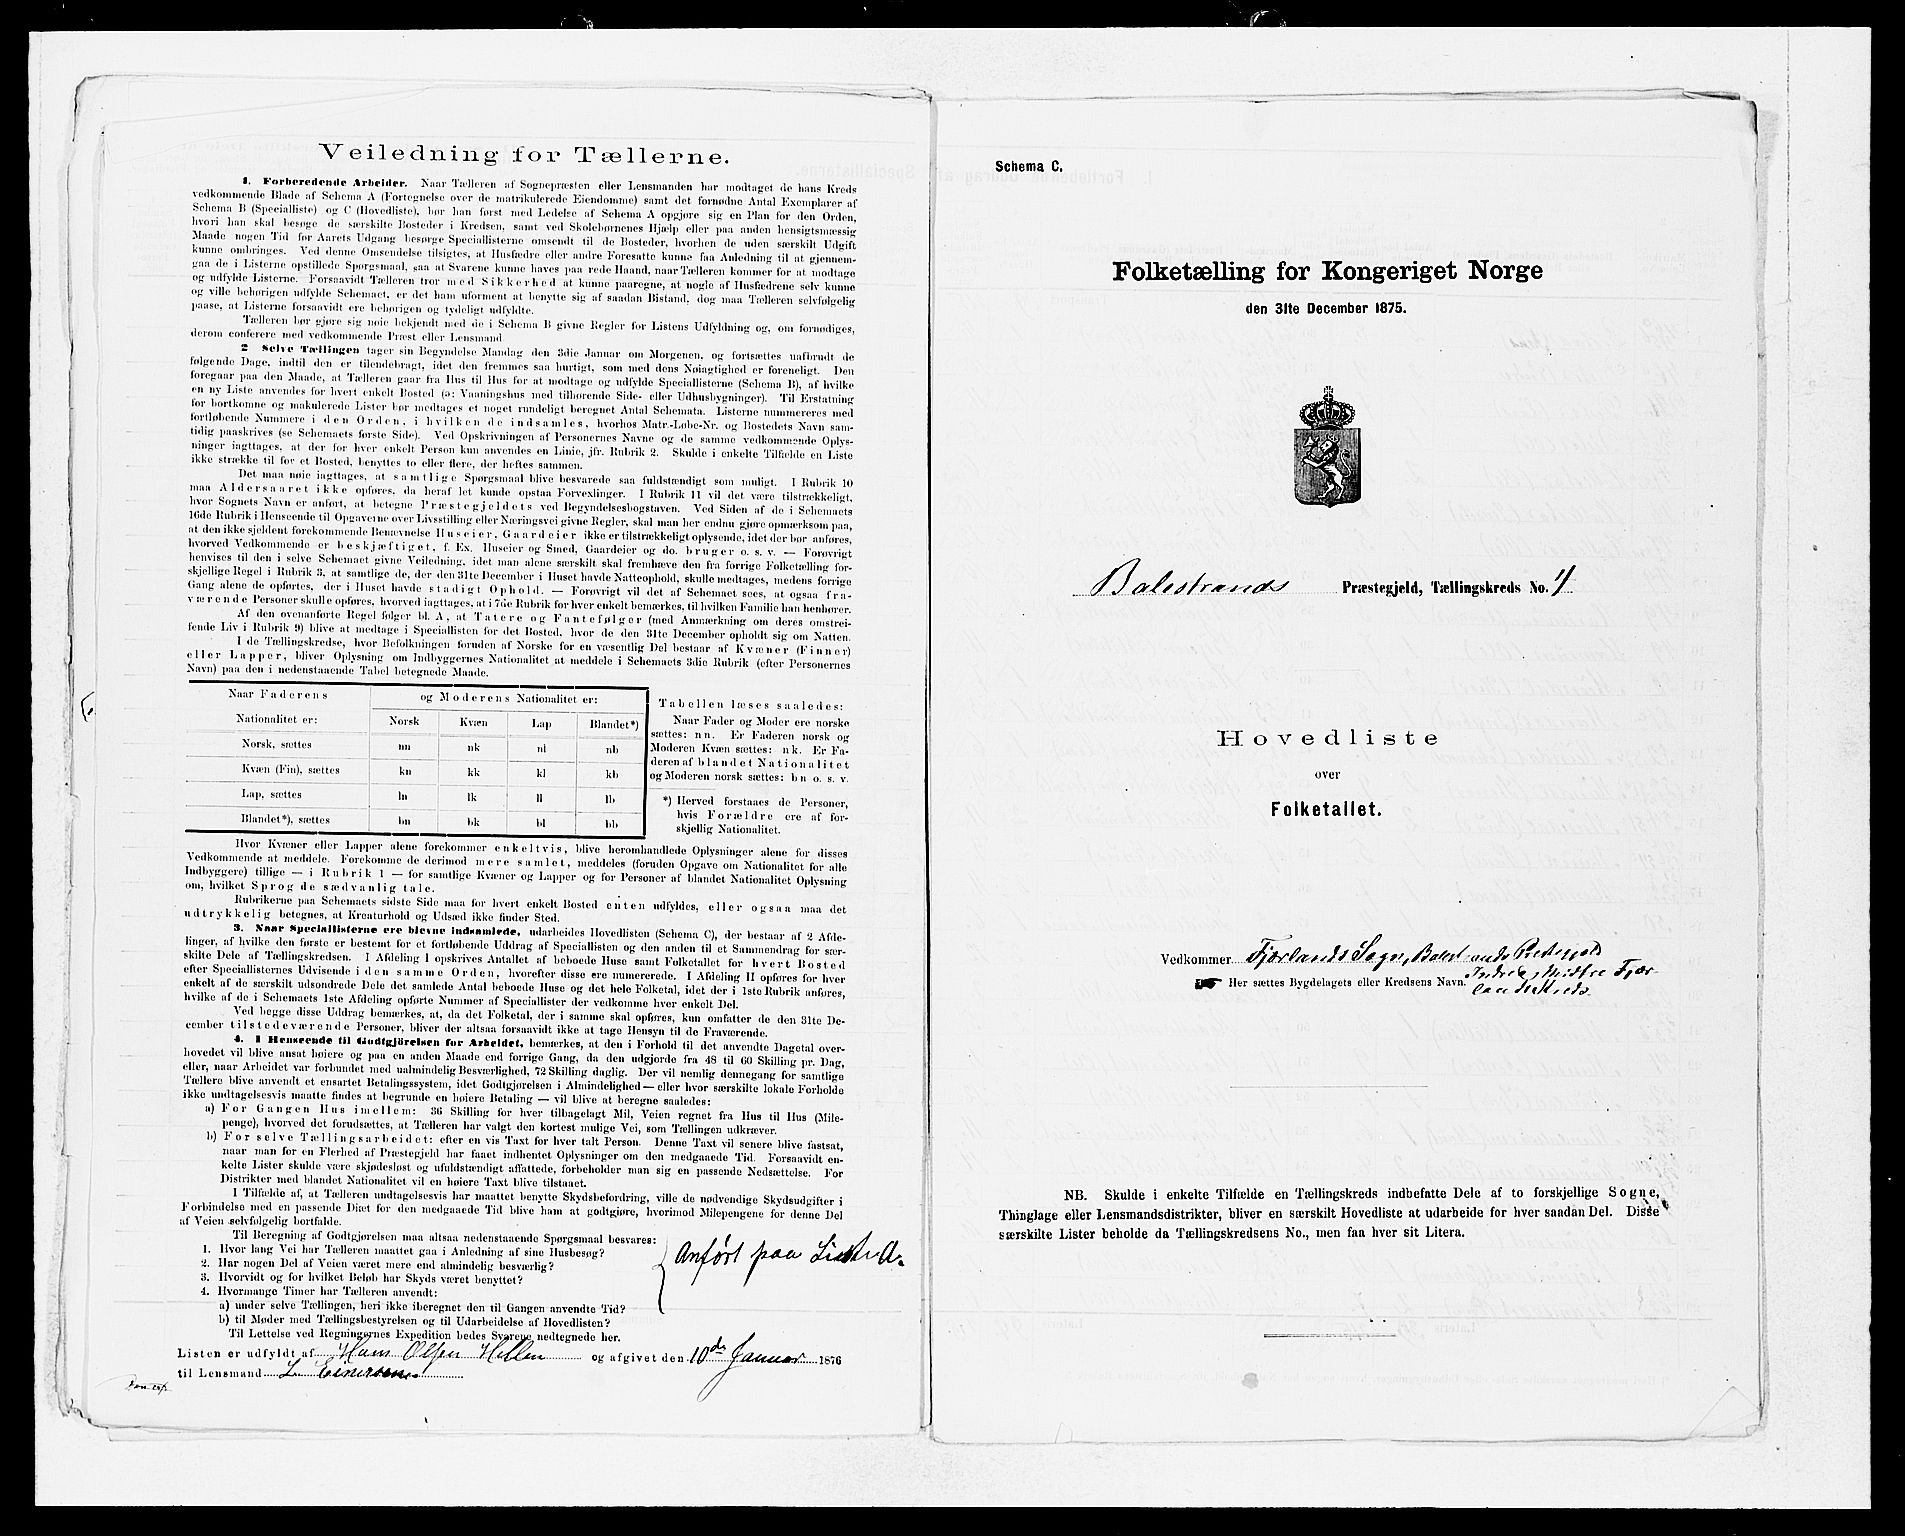 Veiledning for Tællerne.
1. Forberedende Arbeider. Naar Tælleren af Sognepræsten eller Lensmanden har modtaget de hans Kreds
vedkommende Blade af Schema A (Fortegnelse over de matrikulerede Eiendomme) samt det fornødne Antal Exemplarer af
Schema B (Specialliste) og C (Hovedliste), bør han først med Ledelse af Schema A opgjøre sig en Plan for den Orden,
hvori han skal besøge de særskilte Bosteder i Kredsen, samt ved Skolebørnenes Hjælp eller paa anden hensigtsmæssig
Maade nogen Tid før Aarets Udgang besørge Speciallisterne omsendt til de Bosteder, hvorhen de uden særskilt Udgift
kunne ombringes. Ved denne Omsendelse tilsigtes, at Husfædre eller andre Foresatte kunne faa Anledning til at gjennem-
gaa de i Listerne opstillede Spørgsmaal, saa at Svarene kunne haves paa rede Haand, naar Tælleren kommer for at modtage
og udfylde Listerne. Forsaavidt Tælleren tror med Sikkerhed at kunne paaregne, at nogle af Husfædrene selv kunne
og ville behørigen udfylde Schemaet, er det ham uforment at benytte sig af saadan Bistand, dog maa Tælleren selvfølgelig
paase, at Listerne forsaavidt ere behørigen og tydeligt udfyldte.
Tælleren bør gjøre sig nøie bekjendt med de i Schema B givne Regler for Listens Udfyldning og, om fornødiges,
derom conferere med vedkommende Præst eller Lensmand
2 Selve Tællingen tager sin Begyndelse Mandag den 3die Januar om Morgenen, og fortsættes uafbrudt de
følgende Dage, indtil den er tilendebragt, idet den fremmes saa hurtigt, som med dens Nøiagtighed er foreneligt. Den
foregaar paa den Maade, at Tælleren gaar fra Hus til Hus for at modtage og udfylde Speciallisterne (Schema B), af hvilke
en ny Liste anvendes for hvert enkelt Bosted (ɔ: Vaaningshus med tilhørende Side- eller Udhusbygninger). Til Erstatning
for bortkomne og makulerede Lister bør medtages et noget rundeligt beregnet Antal Schemata. Listerne nummereres med
fortløbende Nummere i den Orden, i hvilken de indsamles, hvorhos Matr.-Løbe-Nr. og Bostedets Navn sam-
tidig paaskrives (se Schemaets første Side). Ved Opskrivningen af Personernes Navne og de samme vedkommende Oplys-
ninger iagttages, at der for hver enkelt Person kun anvendes en Linie, jfr. Rubrik 2. Skulde i enkelte Tilfælde en Liste
ikke strække til for et Bosted, benyttes to eller flere, der heftes sammen.
Det maa nøie iagttages, at samtlige Spørgsmaal blive besvarede saa fuldstændigt som muligt. I Rubrik 10
maa Aldersaaret ikke opføres, da heraf let kunde opstaa Forvexlinger. I Rubrik 11 vil det være tilstrækkeligt,
hvor Sognets Navn er anført, at betegne Præstegjeldets ved Begyndelsesbogstaven. Ved Siden af de i Schemaets
16de Rubrik i Henseende til Opgaverne over Livsstilling eller Næringsvei givne Regler, skal man her endnu gjøre opmærksom paa,
at den ikke sjeldent forekommende Benævnelse Huseier, Gaardeier ikke er tilstrækkeligt oplysende, idet der bør anføres,
hvorved Vedkommende er beskjæftiget, f. Ex. Huseier og Smed, Gaardeier og do. bruger o. s. v. — Forøvrigt
henvises til den i selve Schemaet givne Veiledning, idet man alene særskilt skal fremhæve den fra forrige Folketælling for-
skjellige Regel i Rubrik 3, at samtlige de, der den 31te December i Huset havde Natteophold, skulle medtages, medens forrige
Gang alene de opførtes, der i Huset havde stadigt Ophold. — Forøvrigt vil det af Schemaet sees, at ogsaa fra-
værende Personer skulle opføres, hvorved iagttages, at i 7de Rubrik for hver enkelt bemærkes, til hvilken Familie han henhører.
Af den ovenanførte Regel følger bl. A, at Tatere og Fantefølger (med Anmærkning om deres omstrei-
fende Liv i Rubrik 9) blive at medtage i Speciallisten for det Bosted, hvor de den 31te December opholdt sig om Natten.
I de Tællingskredse, hvor Befolkningen foruden af Norske for en væsentlig Del bestaar af Kvæner (Finner)
eller Lapper, bliver Oplysning om Indbyggernes Nationalitet at meddele i Schemaets 3die Rubrik (efter Personernes
Navn) paa den i nedenstaaende Tabel betegnede Maade.
Naar Faderens og Moderens Nationalitet er:
Nationalitet er: Norsk Kvæn Lap Blandet*)
Norsk, sættes nn nk nl nb
Kvæn (Fin), sættes kn kk kl kb
Lap, sættes ln lk ll lb
Blandet*), sættes bn bk bl bb
Tabellen læses saaledes:
Naar Fader og Moder ere norske
sættes: nn. Er Faderen norsk og
Moderen Kvæn sættes: nk. Er Fa-
deren af blandet Nationalitet
og Moderen norsk sættes: bn o. s. v.
*) Herved forstaaes de Personer,
hvis Forældre ere af for-
skjellig Nationalitet.
Hvor Kvæner eller Lapper alene forekommer enkeltvis, blive heromhandlede Oplysninger alene for disses
Vedkommende at meddele. Forekomme de derimod mere samlet, meddeles (foruden Opgave om Nationalitet for alle
Indbyggere) tillige — i Rubrik 1 — for samtlige Kvæner og Lapper og for Personer af blandet Nationalitet Oplysning
om, hvilket Sprog de sædvanlig tale.
Rubrikerne paa Schemaets sidste Side maa for hvert enkelt Bosted enten udfyldes, eller ogsaa maa det
udtrykkelig betegnes, at Kreaturhold og Udsæd ikke finder Sted.
3. Naar Speciallisterne ere blevne indsamlede, udarbeides Hovedlisten (Schema C), der bestaar af 2 Afde-
linger, af hvilke den første er bestemt for et fortløbende Uddrag af Speciallisten og den anden til et Sammendrag for sær-
skilte Dele af Tællingskredsen. I Afdeling I opskrives Antallet af beboede Huse samt Folketallet for hvert Bosted
efter Speciallisternes Udvisende i den samme Orden, hvorefter disse ere nummererede. I Afdeling II opføres for hver
enkelt af de særskilt udsondrede Dele det samlede Antal beboede Huse og det hele Folketal, idet der i 1ste Rubrik anføres,
hvilke af de i Schemaets 1ste Afdeling opførte Nummer af Speciallister der vedkomme hver enkelt Del.
Ved begge disse Uddrag bemærkes, at, da det Folketal, der i samme skal opføres, kun omfatter de den 31te De-
cember tilstedeværende Personer, bliver der altsaa forsaavidt ikke at tage Hensyn til de Fraværende.
4. I Henseende til Godtgjörelsen for Arbeidet, bemærkes, at den i Forhold til det anvendte Dagetal over-
hovedet vil blive ansat høiere og paa en anden Maade end forrige Gang, da den udgjorde fra 48 til 60 Skilling pr. Dag,
eller, naar Arbeidet var forbundet med ualmindelig Besværlighed, 72 Skilling daglig. Der vil nemlig dennegang for samtlige
Tællere blive anvendt et ensartet Betalingssystem, idet Godtgjørelsen i Almindelighed — eller hvor særskilte lokale Forholde
ikke undtagelsesvis maatte findes at begrunde en høiere Betaling — vil blive at beregne saaledes:
a) For Gangen Hus imellem: 36 Skilling for hver tilbagelagt Mil, Veien regnet fra Hus til Hus (Mile-
penge), hvorved det forudsættes, at Tælleren har valgt den kortest mulige Vei, som Tællingen udkræver.
b) For selve Tællingsarbeidet: efter en vis Taxt for hver talt Person. Denne Taxt vil senere blive fastsat,
naar man for en Flerhed af Præstegjeld har faaet indhentet Oplysninger om den medgaaede Tid. Forsaavidt en-
kelte Lister skulde være skjødesløst og ufuldstændigt affattede, forbeholder man sig en passende Nedsættelse. For
Distrikter med blandet Nationalitet vil en høiere Taxt blive tilstaaet.
I Tilfælde af, at Tælleren undtagelsesvis har maattet benytte Skydsbefordring, ville de nødvendige Skydsudgifter i
Forbindelse med en passende Diæt for den medgaaede Tid blive ham at godtgjøre, hvorimod Milepengene for denne Del
af Veien selvfølgelig bortfalde.
Til Beregning af Godtgjørelsen maa altsaa nedenstaaende Spørgsmaal besvares:
1. Hvor lang Vei har Tælleren maattet gaa i Anledning af sine Husbesøg?
2. Har nogen Del af Veien været mere end almindelig besværlig?
3. Hvorvidt og for hvilket Beløb har Skyds været benyttet?
4. Hvormange Timer har Tælleren anvendt:
a) under selve Tællingen, heri ikke iberegnet den til Gangen anvendte Tid?
b) til Møder med Tællingsbestyrelsen og til Udarbeidelse af Hovedlisten?
Anført paa Liste A.
Til Lettelse ved Regningernes Expedition bedes Svarene nedtegnede her.
Listen er udfyldt af Hans Olsen Hellen og afgivet den 10de Januar 1876
til Lensmand L. Einersen
Schema C.
Folketælling for Kongeriget Norge
den 31te December 1875.
Balestrands Præstegjeld, Tællingskreds No. 4
Hovedliste
over
Folketallet.
Vedkommer Fjærlands Sogn, Balestrands
Her sættes Bygdelagets eller Kredsens Navn. Indre & Midtre Fjær-
lands Kreds
NB. Skulde i enkelte Tilfælde en Tællingskreds indbefatte Dele af to forskjellige Sogne,
Thinglage eller Lensmandsdistrikter, bliver en særskilt Hovedliste at udarbeide for hver saadan Del. Disse
særskilte Lister beholde da Tællingskredsens No., men faa hver sit Litera.